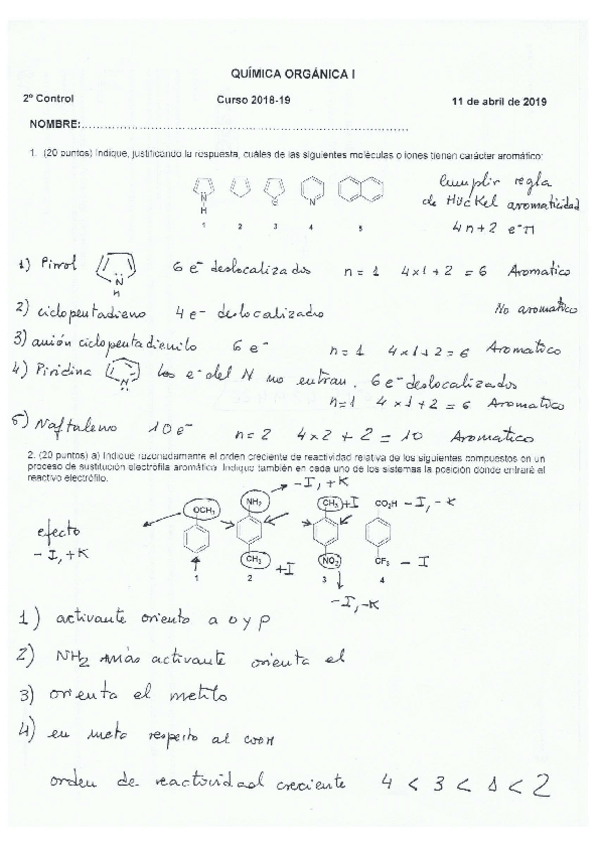 QUÍMICA ORGÁNICA I
2º Control Curso 2018-19 11 de abril de 2019
NOMBRE:
1. (20 puntos) Indique, justificando la respuesta, cuáles de las siguientes moléculas o iones tienen carácter aromático:
N
H
N
1 2 3 4 5
Cumplir regla
de Hückel aromaticidad
4n+2 e⁻π
1) Pirrol N H 6 e⁻ deslocalizados n = 1 4x1+2 = 6 Aromatico
2) ciclopentadieno 4 e⁻ deslocalizado No aromatico
3) anión ciclopentadienilo 6 e⁻ n = 1 4x1+2 = 6 Aromatico
4) Piridina los e⁻ del N no entran. 6 e⁻ deslocalizados
n=1 4x1+2 = 6 Aromatico
5) Naftaleno 10 e⁻ n = 2 4x2+2 = 10 Aromatico
2. (20 puntos) a) Indique razonadamente el orden creciente de reactividad relativa de los siguientes compuestos en un
proceso de sustitución electrófila aromática. Indique también en cada uno de los sistemas la posición donde entrará el
reactivo electrófilo.
-I, +K
OCH₃ NH₂ CH₃ +I CO₂H -I, -K
efecto
-I, +K
CH₃ +I NO₂ CF₃ -I
1 2 3 4
-I, -K
1) activante orienta a o y p
2) NH₂ más activante orienta el
3) orienta el metilo
4) en meta respecto al COOH
orden de reactividad creciente 4 < 3 < 1 < 2